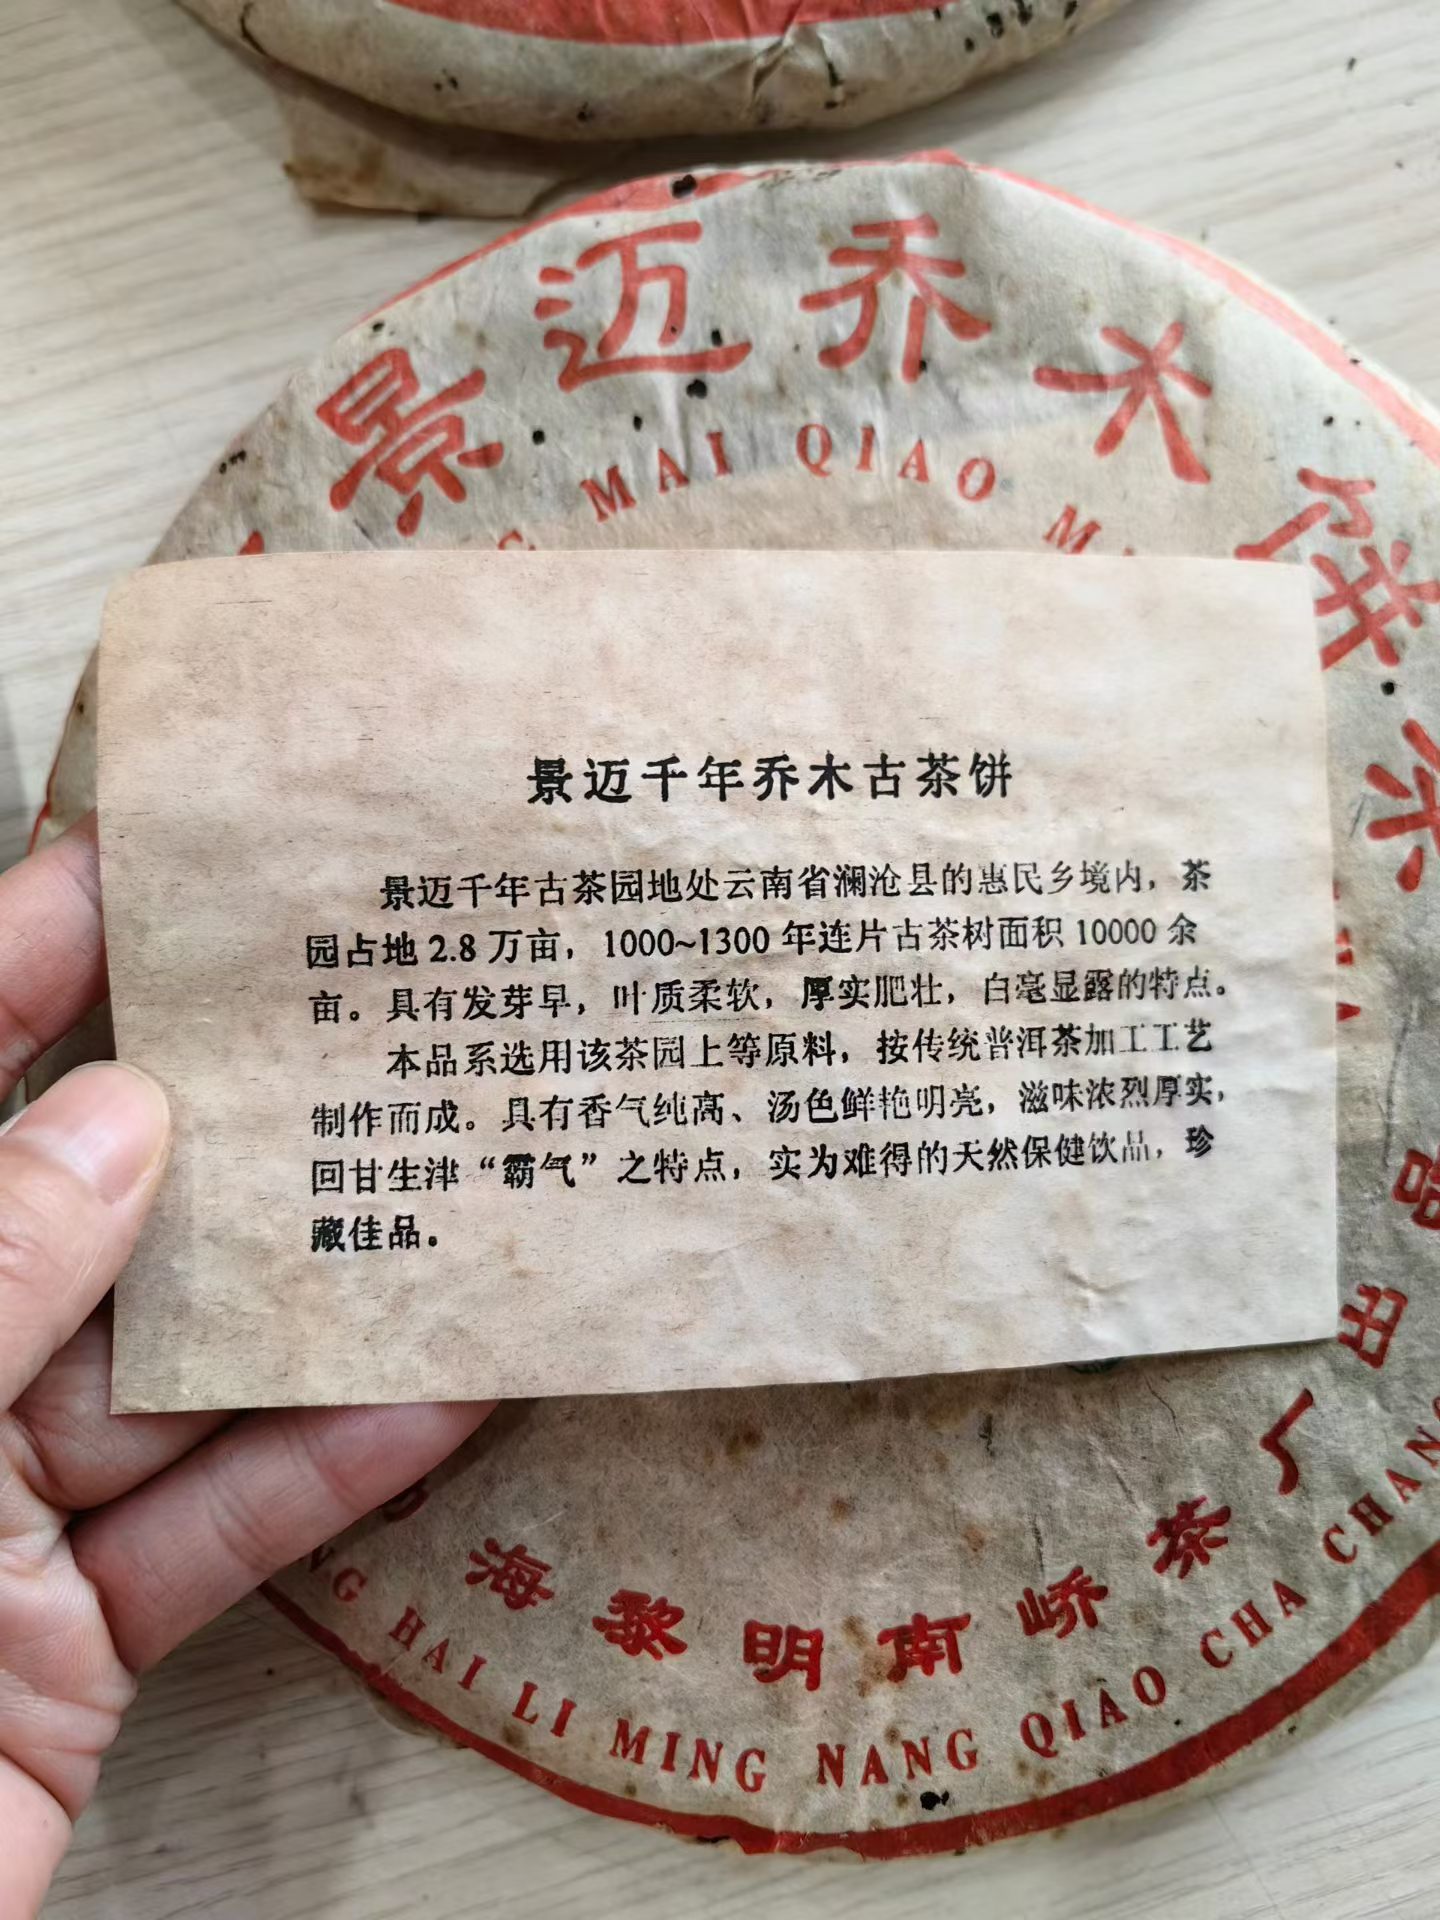 景迈乔木
MAI QIAO M
景迈千年乔木古茶饼
景迈千年古茶园地处云南省澜沧县的惠民乡境内，茶
园占地 2.8 万亩，1000~1300 年连片古茶树面积 10000 余
亩。具有发芽早，叶质柔软，厚实肥壮，白毫显露的特点。
本品系选用该茶园上等原料，按传统普洱茶加工工艺
制作而成。具有香气纯高、汤色鲜艳明亮，滋味浓烈厚实，
回甘生津“霸气”之特点，实为难得的天然保健饮品，珍
藏佳品。
海黎明南峤茶厂出
NG HAI LI MING NANG QIAO CHA CHANG